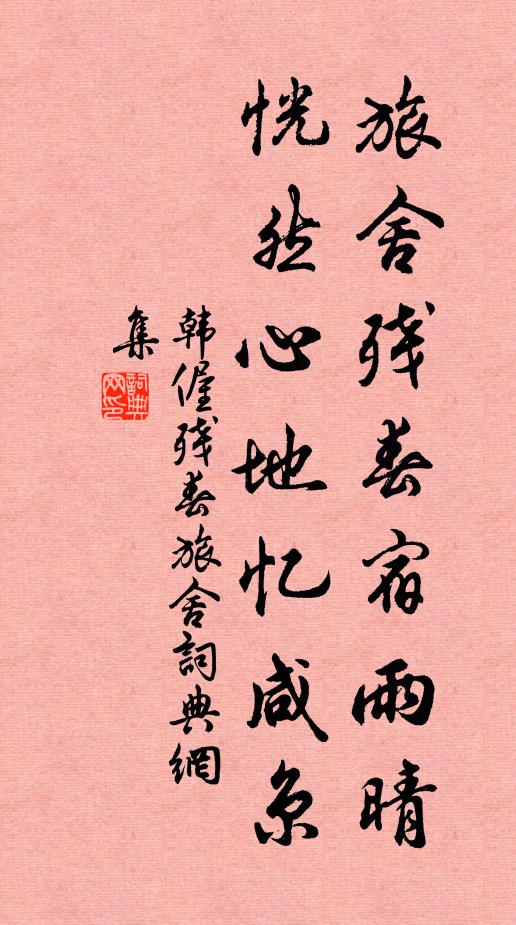 旅舍残春宿雨晴
恍然心地忆咸京
韩偓残春旅舍詞典網
集
詞典
网印